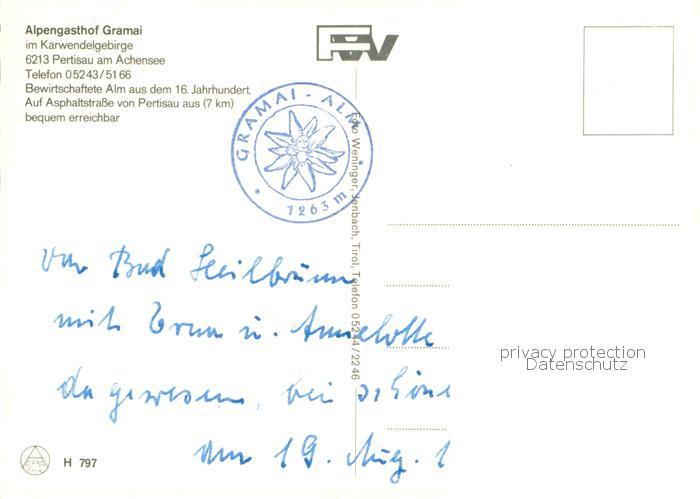 Alpengasthof Gramai
im Karwendelgebirge
6213 Pertisau am Achensee
Telefon 05243/5166
Bewirtschaftete Alm aus dem 16. Jahrhundert.
Auf Asphaltstraße von Pertisau aus (7 km)
bequem erreichbar
GRAMAI - ALM
1263 m
Foto Weninger, Jenbach, Tirol, Telefon 05244/2246
Von Bad Heilbrunn
mit Erna u. Annelotte
da gewesen, bei schöne
am 19. Aug. 1
privacy protection
Datenschutz
H 797